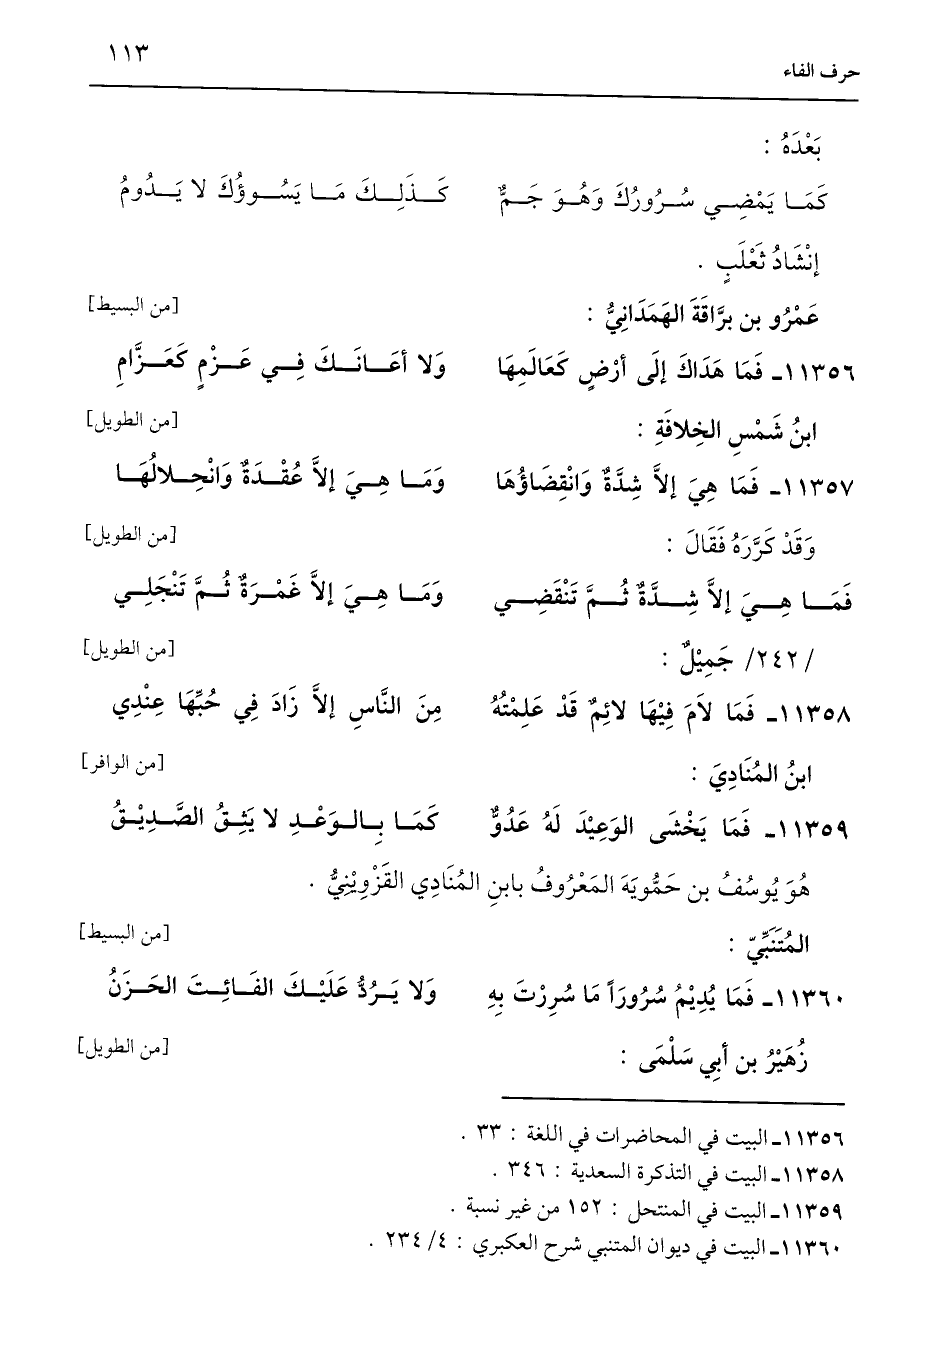 ١١٣
حرف الفاء
بَعْدَهُ :
كَمَــا يَمْضِــي سُــرُورُكَ وَهُــوَ جَــمٌّ كَــذَلِــكَ مَــا يَسُــوؤُكَ لا يَــدُومُ
إنْشَادُ ثَعْلَبٍ .
عَمْرُو بن برَّاقَةَ الهَمَدَانِيُّ : [من البسيط]
١١٣٥٦ـ فَمَا هَدَاكَ إلَى أرْضٍ كَعَالَمِهَا وَلا أعَــانَــكَ فِــي عَــزْمٍ كَعَــزَّامِ
ابنُ شَمْسِ الخِلافَةِ : [من الطويل]
١١٣٥٧ـ فَمَا هِيَ إلاَّ شِدَّةٌ وَانْقِضَاؤُهَا وَمَــا هِــيَ إلاَّ عُقْــدَةٌ وَانْحِــلالُهَــا
وَقَدْ كَرَّرَهُ فَقَالَ : [من الطويل]
فَمَــا هِــيَ إلاَّ شِــدَّةٌ ثُــمَّ تَنْقَضِــي وَمَــا هِــيَ إلاَّ غَمْــرَةٌ ثُــمَّ تَنْجَلِــي
/٢٤٢/ جَمِيْلٌ : [من الطويل]
١١٣٥٨ـ فَمَا لاَمَ فِيْهَا لائِمٌ قَدْ عَلِمْتُهُ مِنَ النَّاسِ إلاَّ زَادَ فِي حُبِّهَا عِنْدِي
ابنُ المُنَادِيَ : [من الوافر]
١١٣٥٩ـ فَمَا يَخْشَى الوَعِيْدَ لَهُ عَدُوٌّ كَمَــا بِــالــوَعْــدِ لا يَثِــقُ الصَّــدِيْــقُ
هُوَ يُوسُفُ بن حَمُّويَةَ المَعْرُوفُ بابنِ المُنَادِي القَزْوِيْنِيُّ .
المُتَنَبِّيّ : [من البسيط]
١١٣٦٠ـ فَمَا يُدِيْمُ سُرُورَاً مَا سُرِرْتَ بِهِ وَلا يَــرُدُّ عَلَيْــكَ الفَــائِــتَ الحَــزَنُ
زُهَيْرُ بن أبِي سَلْمَى : [من الطويل]
١١٣٥٦ـ البيت في المحاضرات في اللغة : ٣٣ .
١١٣٥٨ـ البيت في التذكرة السعدية : ٣٤٦ .
١١٣٥٩ـ البيت في المنتحل : ١٥٢ من غير نسبة .
١١٣٦٠ـ البيت في ديوان المتنبي شرح العكبري : ٤/ ٢٣٤ .